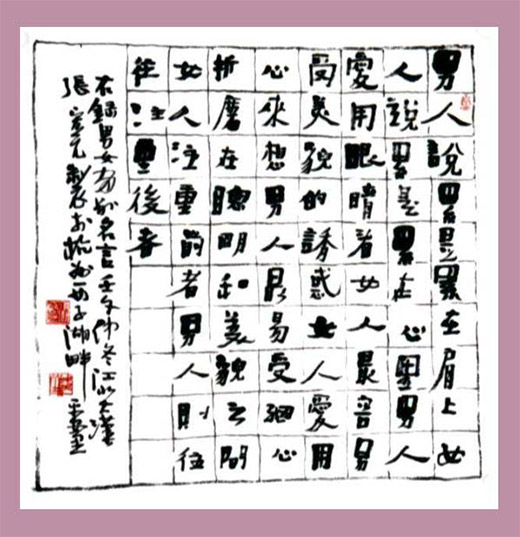 男人說累是累在肩上女
人說累是累在心裏男人
愛用眼睛看女人最容易
受美貌的誘惑女人愛用
心來想男人最易受心
折磨在聰明和美貌之間
女人注重前者男人則往
往注重後者
右錄男女有別名言壬午仲冬江山大漢
張於杭州西子湖畔